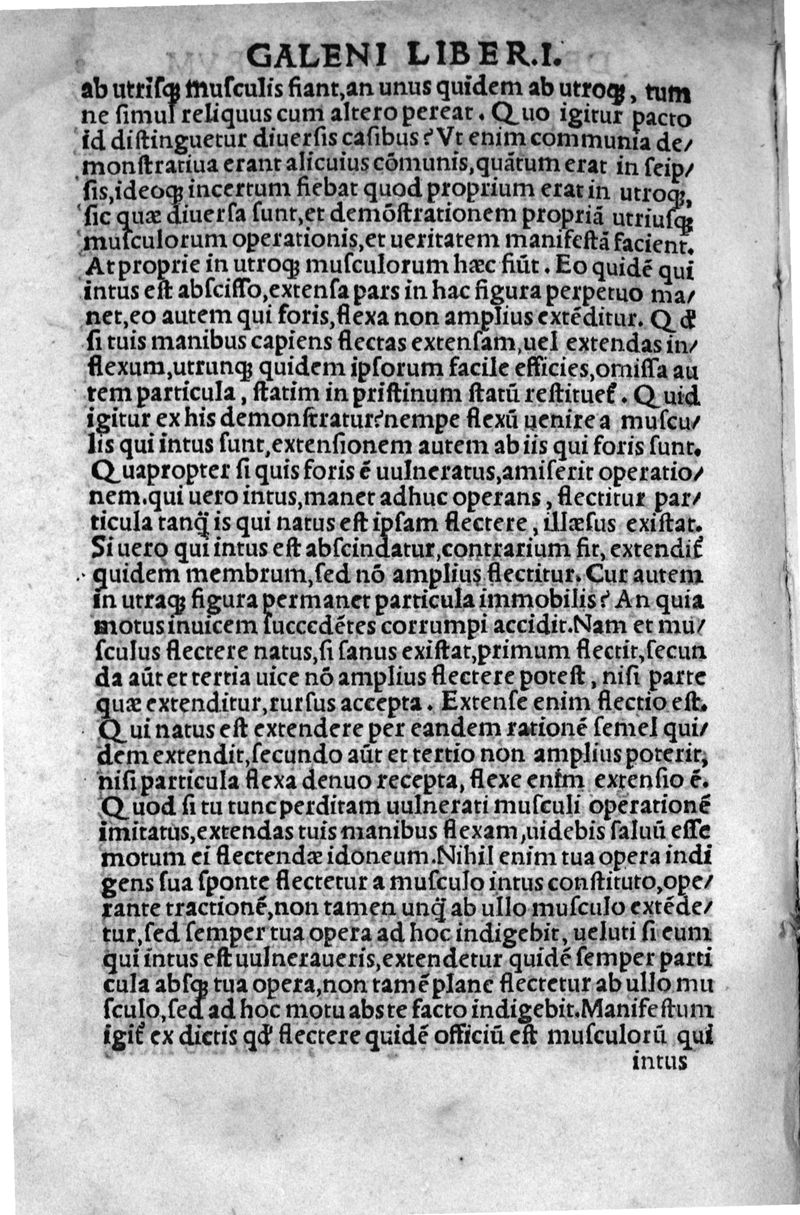 GALENI LIBER.I.
ab utrisqꝫ musculis fiant,an unus quidem ab utroqꝫ, tum
ne simul reliquus cum altero pereat. Quo igitur pacto
id distinguetur diuersis casibus? Vt enim communia de/
monstratiua erant alicuius cōmunis,quātum erat in seip/
sis,ideoqꝫ incertum fiebat quod proprium erat in utroqꝫ,
sic quæ diuersa sunt,et demōstrationem propriā utriusqꝫ
musculorum operationis,et ueritatem manifestā facient.
At proprie in utroqꝫ musculorum hæc fiūt. Eo quidē qui
intus est abscisso,extensa pars in hac figura perpetuo ma/
net,eo autem qui foris,flexa non amplius extēditur. Qđ
si tuis manibus capiens flectas extensam,uel extendas in/
flexum,utrunqꝫ quidem ipsorum facile efficies,omissa au
tem particula, statim in pristinum statū restituet᷑. Quid
igitur ex his demonstratur?nempe flexū uenire a muscu/
lis qui intus sunt,extensionem autem ab iis qui foris sunt.
Quapropter si quis foris ē uulneratus,amiserit operatio/
nem.qui uero intus,manet adhuc operans, flectitur par/
ticula tanq̄ is qui natus est ipsam flectere, illæsus existat.
Si uero qui intus est abscindatur,contrarium fit, extendit᷑
quidem membrum,sed nō amplius flectitur. Cur autem
in utraqꝫ figura permanet particula immobilis? An quia
motus inuicem succedētes corrumpi accidit.Nam et mu/
sculus flectere natus,si sanus existat,primum flectit,secun
da aūt et tertia uice nō amplius flectere potest, nisi parte
quæ extenditur,rursus accepta. Extense enim flectio est.
Qui natus est extendere per eandem rationē semel qui/
dem extendit,secundo aūt et tertio non amplius poterit,
nisi particula flexa denuo recepta, flexe enim extensio ē.
Quod si tu tunc perditam uulnerati musculi operationē
imitatus,extendas tuis manibus flexam,uidebis saluū esse
motum ei flectendæ idoneum.Nihil enim tua opera indi
gens sua sponte flectetur a musculo intus constituto,ope/
rante tractionē,non tamen unq̄ ab ullo musculo extēde/
tur,sed semper tua opera ad hoc indigebit, ueluti si eum
qui intus est uulneraueris,extendetur quidē semper parti
cula absqꝫ tua opera,non tamē plane flectetur ab ullo mu
sculo,sed ad hoc motu abs te facto indigebit.Manifestum
igit᷑ ex dictis qđ flectere quidē officiū est musculorū qui
intus